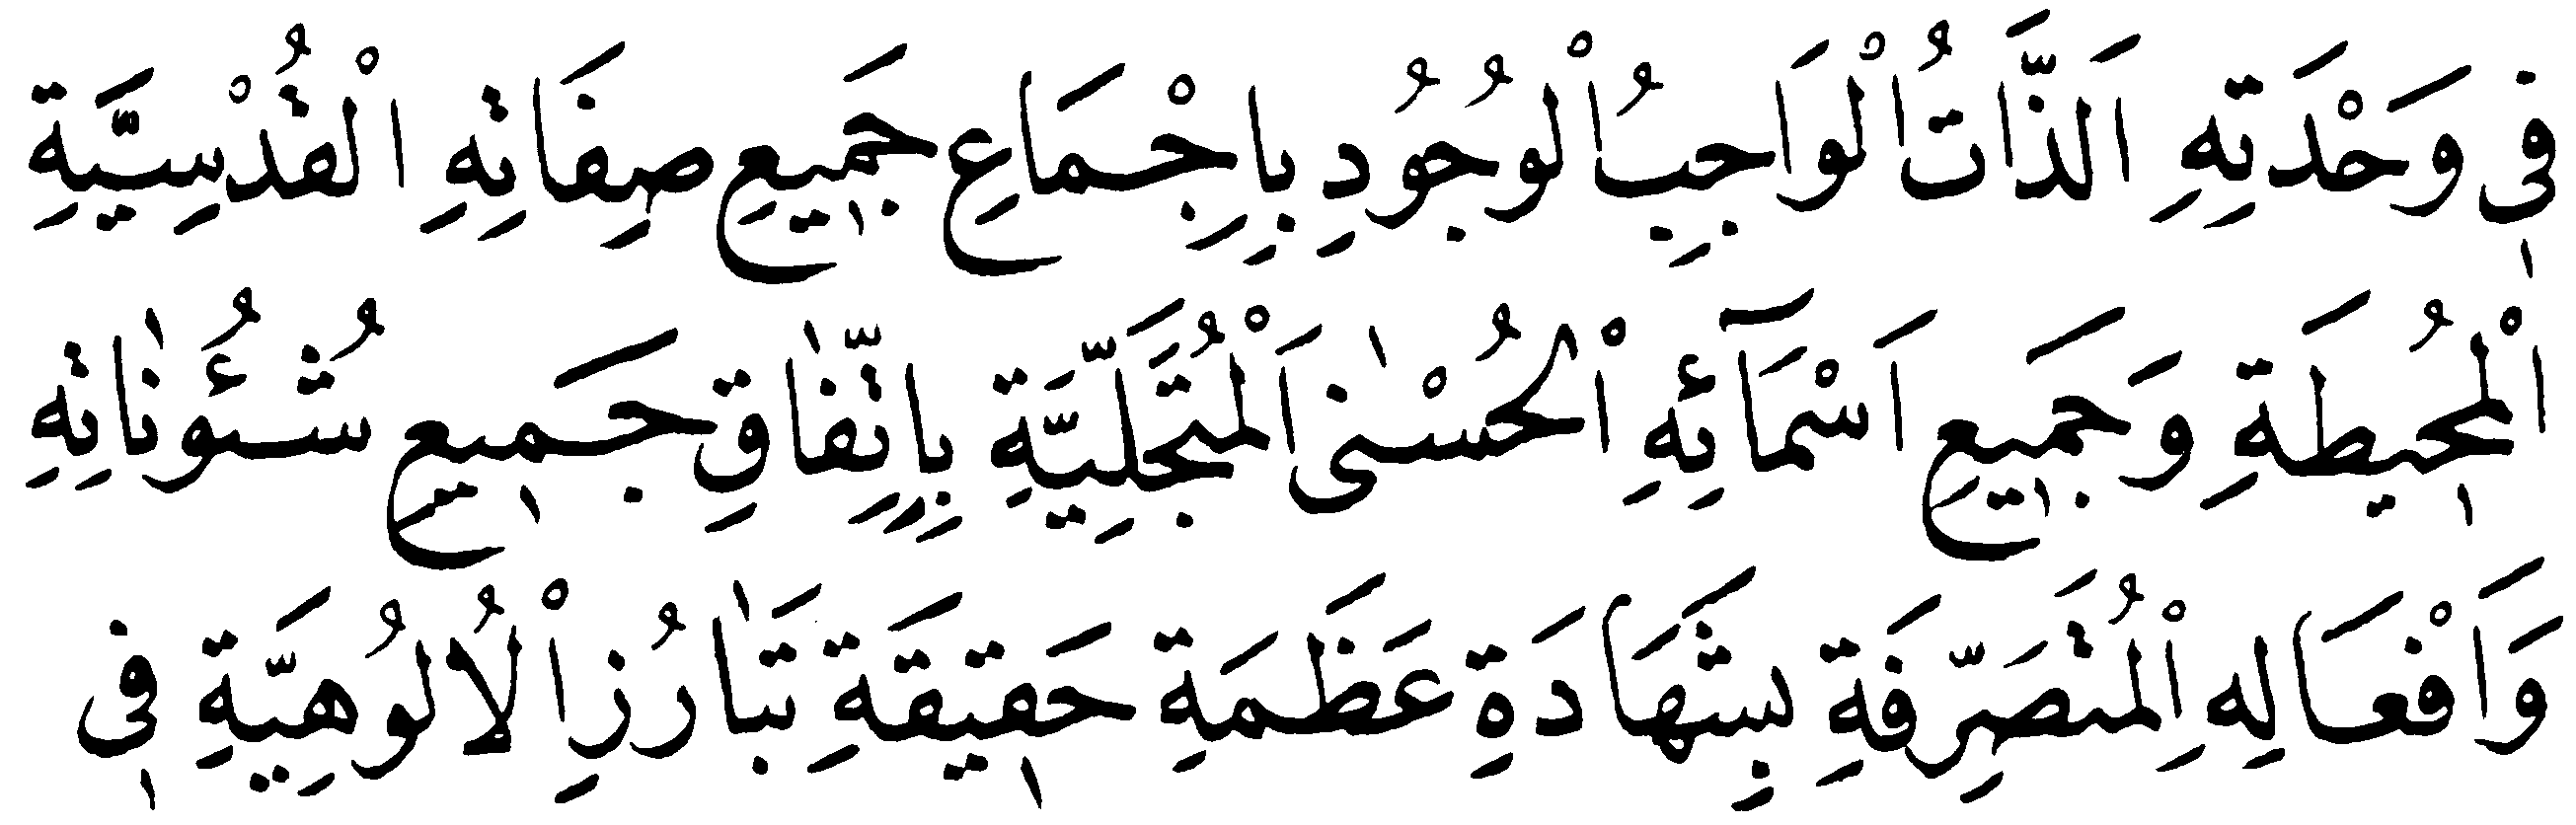 فِى وَحْدَتِهِ اَلذَّاتُ الْوَاجِبُ الْوُجُودِ بِاِجْمَاعِ جَمِيعِ صِفَاتِهِ الْقُدْسِيَّةِ
الْمُحِيطَةِ وَجَمِيعِ اَسْمَآئِهِ الْحُسْنٰى اَلْمُتَجَلِّيَّةِ بِاِتِّفَاقِ جَمِيعِ شُئُونَاتِهِ
وَاَفْعَالِهِ الْمُتَصَرِّفَةِ بِشَهَادَةِ عَظَمَةِ حَقِيقَةِ تَبَارُزِ الْاُلُوهِيَّةِ فِى